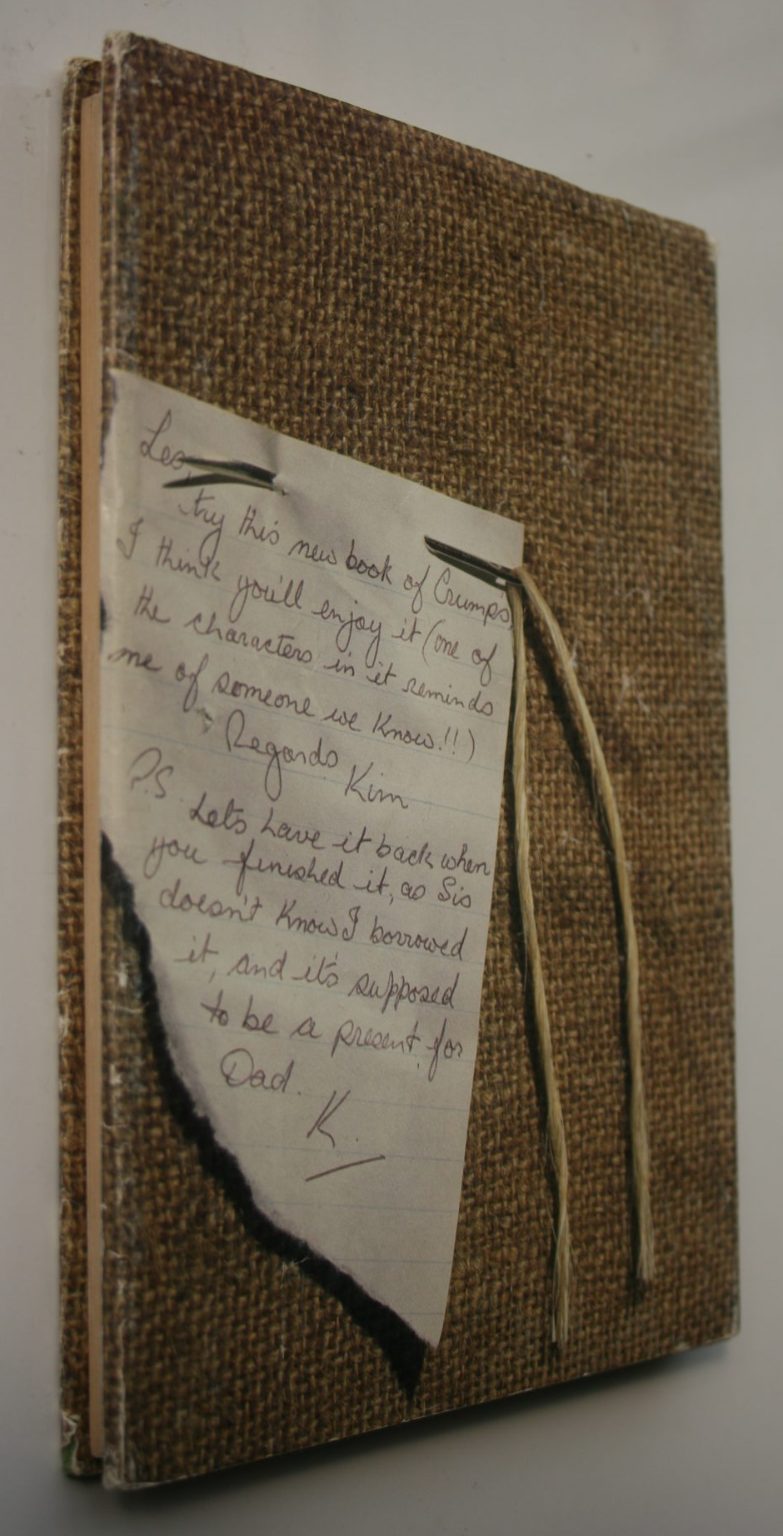 Leo,
try this new book of Crump's,
I think you'll enjoy it (one of
the characters in it reminds
me of someone we know!!)
Regards
Kim
P.S. Lets have it back when
you finished it, as Sis
doesn't know I borrowed
it, and it's supposed
to be a present for
Dad.
K.